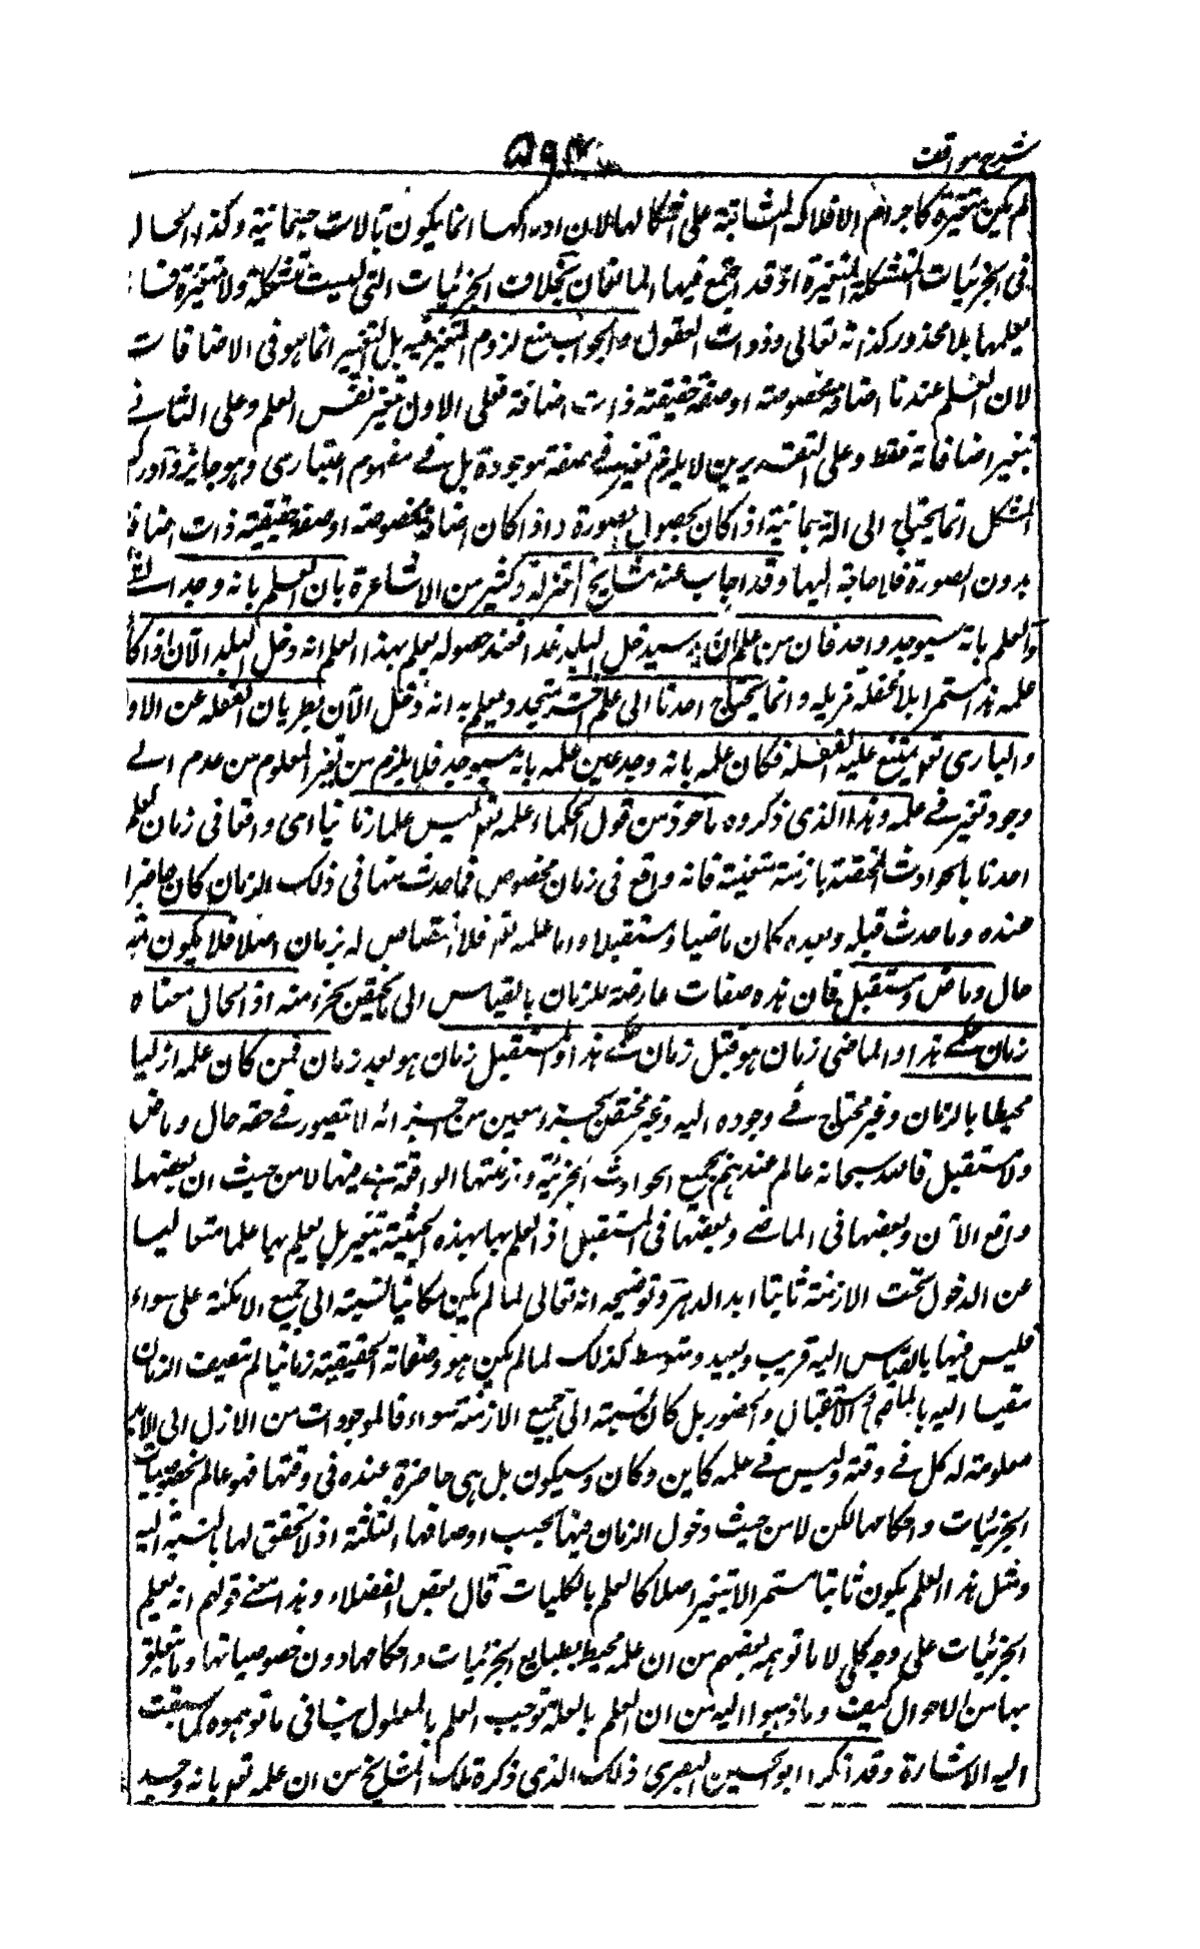 شرح مواقف
۵۹۴
لم يكن متغيرة كاجرام الافلاك الثابتة على اشكالها لان ادراكها انما يكون بآلات جسمانية وكذا الحال
فى الجزئيات المتشكلة المتغيرة اذ قد اجتمع فيها المانعان بخلاف الجزئيات التى ليست متشكلة ولا متغيرة فانه
يعلمها بلا محذور كذاته تعالى وذوات العقول والجواب منع لزوم التغير فيه بل التغير انما هو فى الاضافات
لان العلم عندنا اضافة مخصوصة او صفة حقيقية ذات اضافة فعلى الاول تتغير نفس العلم وعلى الثانى
تتغير اضافاته فقط وعلى التقديرين لا يلزم تغير فى صفة موجودة بل فى مفهوم اعتبارى وهو جائز وادراك
المتشكل انما يحتاج الى آلة جسمانية اذا كان بحصول الصورة واذا كان اضافة مخصوصة او صفة حقيقية ذات اضافة
بدون الصورة فلا حاجة اليها وقد اجاب عنه مشايخ المعتزلة وكثير من الاشاعرة بان العلم بانه وجد الشئ
والعلم بانه سيوجد واحد فان من علم ان زيد سيدخل البلد غدا فعند حصوله يعلم بهذا العلم انه دخل البلد الآن اذا كان
علمه هذا مستمرا بلا غفلة مزيلة وانما يحتاج احدنا الى علم آخر متجدد يعلم به انه دخل الآن بطريان الغفلة عن الاول
والبارى تعم يمتنع عليه الغفلة فكان علمه بانه وجد عين علمه بانه سيوجد فلا يلزم من تغير المعلوم من عدم الى
وجود تغير فى علمه وهذا الذى ذكروه ماخوذ من قول الحكماء علمه تعم ليس علما زمانيا اى واقعا فى زمان كعلم
احدنا بالحوادث المختصة بازمنة متعينة فانه واقع فى زمان مخصوص فما حدث منها فى ذلك الزمان كان حاضرا
عنده وما حدث قبله وبعده كان ماضيا ومستقبلا واما علمه تعم فلا اختصاص له بزمان اصلا فلا يكون ثمه
حال وماض ومستقبل فان هذه صفات عارضة للزمان بالقياس الى ما يختص بجزء منه اذ الحال معناه
زمان حكمى هذا والماضى زمان هو قبل زمان حكمى هذا والمستقبل زمان هو بعد زمان فمن كان علمه ازليا
محيطا بالزمان وغير محتاج فى وجوده اليه وغير مختص بجزء معين من اجزائه لا يتصور فى حقه حال وماض
ولا مستقبل فالله سبحانه عالم عندهم بجميع الحوادث الجزئية وازمنتها الواقعة هى فيها لا من حيث ان بعضها
واقع الآن وبعضها فى الماضى وبعضها فى المستقبل اذ العلم بها بهذه الحيثية يتغير بل يعلم بها علما متعاليا
عن الدخول تحت الازمنة ثابتا ابد الدهر وتوضيحه انه تعالى لما لم يكن مكانيا نسبته الى جميع الامكنة على سواء
فليس فيها بالقياس اليه قريب وبعيد ومتوسط كذلك لما لم يكن هو وصفاته الحقيقية زمانيا لم يتصف الزمان
مقيسا اليه بالمضى والاستقبال والحضور بل كان نسبته الى جميع الازمنة سواء فالموجودات من الازل الى الابد
معلومة له كل فى وقته وليس فى علمه كاين وكان وسيكون بل هى حاضرة عنده فى وقتها فهو عالم بخصوصيات
الجزئيات واحكامها لكن لا من حيث دخول الزمان فيها بحسب اوصافها الثلثة اذ لا تحقق لها بالنسبة اليه
ومثل هذا العلم يكون ثابتا مستمرا لا يتغير اصلا كالعلم بالكليات قال بعض الفضلاء وهذا معنى قولهم انه يعلم
الجزئيات على وجه كلى لا ما توهمه بعضهم من ان علمه محيط بطبايع الجزئيات واحكامها دون خصوصياتها وما يتعلق
بها من الاحوال كيف وما ذهبوا اليه من ان العلم بالعلة توجب العلم بالمعلول ينافى ما توهموه كما سبقت
اليه الاشارة وقد انكر ابو الحسين البصرى ذلك الذى ذكره تلك المشايخ من ان علمه تعم بانه وجد